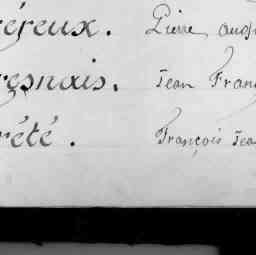 éreux. Pierre
resnais. Jean Fran
rété. François Jea